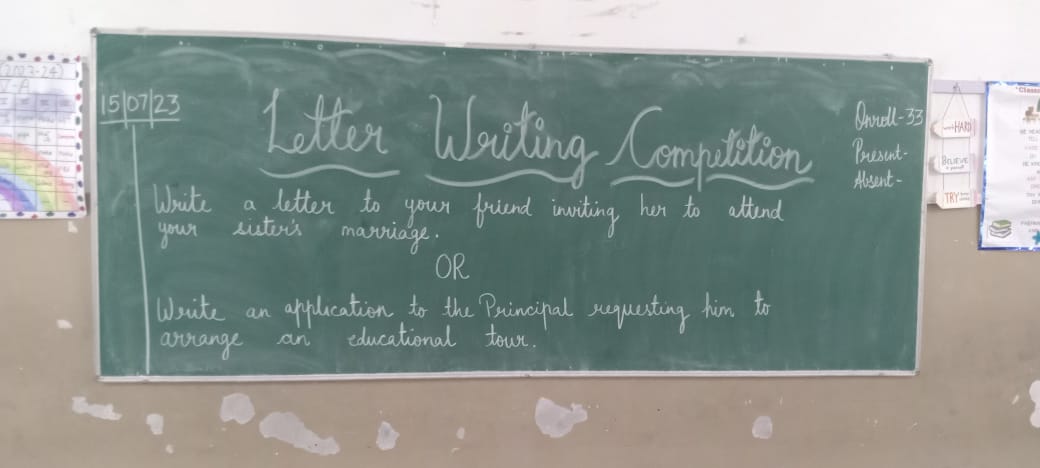 (2023-24)
15|07|23
Letter Writing Competition
Enroll-33
Present-
Absent-
Write a letter to your friend inviting her to attend
your sister's marriage.
OR
Write an application to the Principal requesting him to
arrange an educational tour.
HARD
BELIEVE
TRY